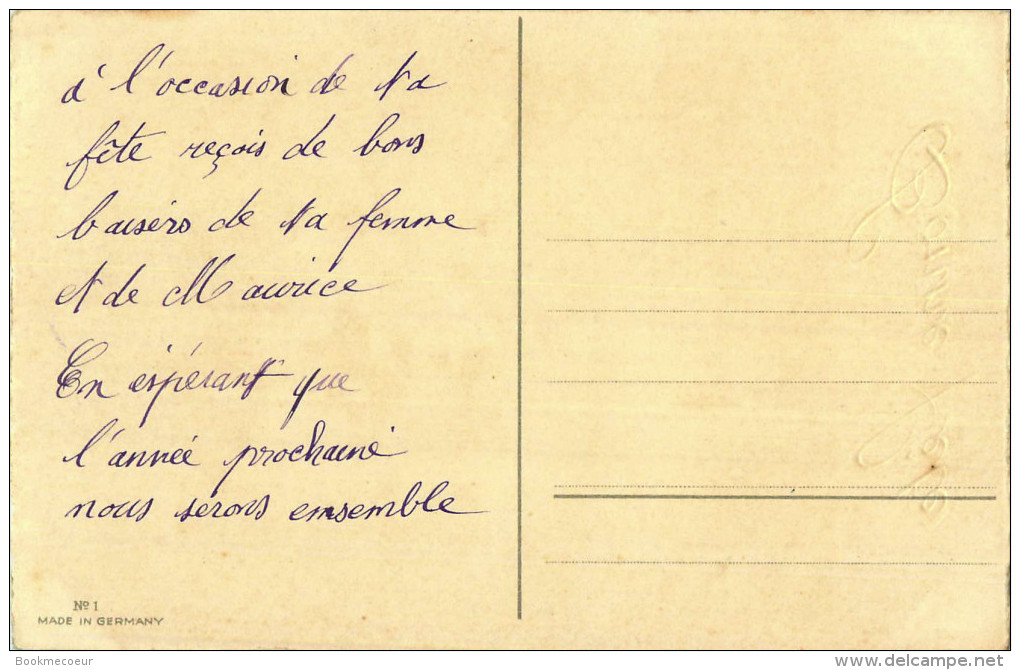 à l'occasion de ta
fête reçois de bons
baisérs de ta femme
et de Maurice
En éspérant que
l'année prochainé
nous sérons ensemble
Nº 1
MADE IN GERMANY
Bonne Fête
Bookmecoeur
delcampe.net